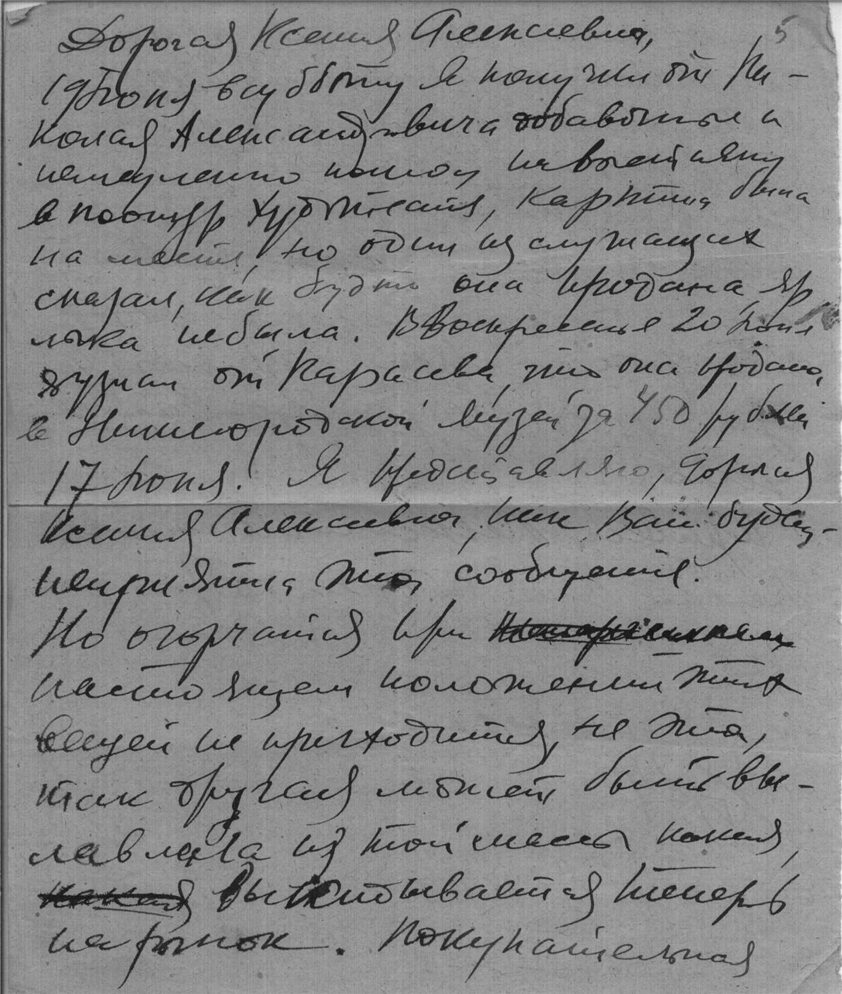 5
Дорогая Ксения Алексеевна,
19 Июня в субботу я получил от Ни-
колая Александровича добавочные и
немедленно пошел на выставку
в поощр Художеств, картина была
на месте, но один из служащих
сказал, как будто она продана, яр
лыка не было. В Воскресенье 20 Июня
я узнал от Карасева, что она продана,
в Нижегородской Музей за 450 рублей
17 Июня. Я представляю, дорогая
Ксения Алексеевна, как Вам будет
неприятна это сообщение.
Но огорчатся при
настоящем положении этих
вещей не приходится, не эта,
так другая может быть вы-
лавлена из той массы какая,
выкидывается теперь
на рынок. Покупательная